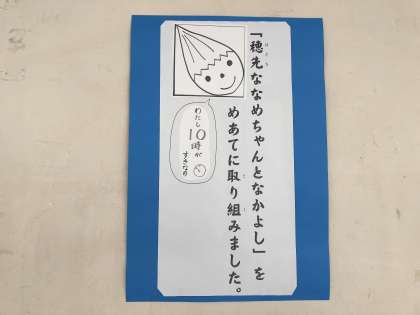 「穂先ななめちゃんとなかよし」を
めあてに取り組みました。
わたし
10時が
すきなの